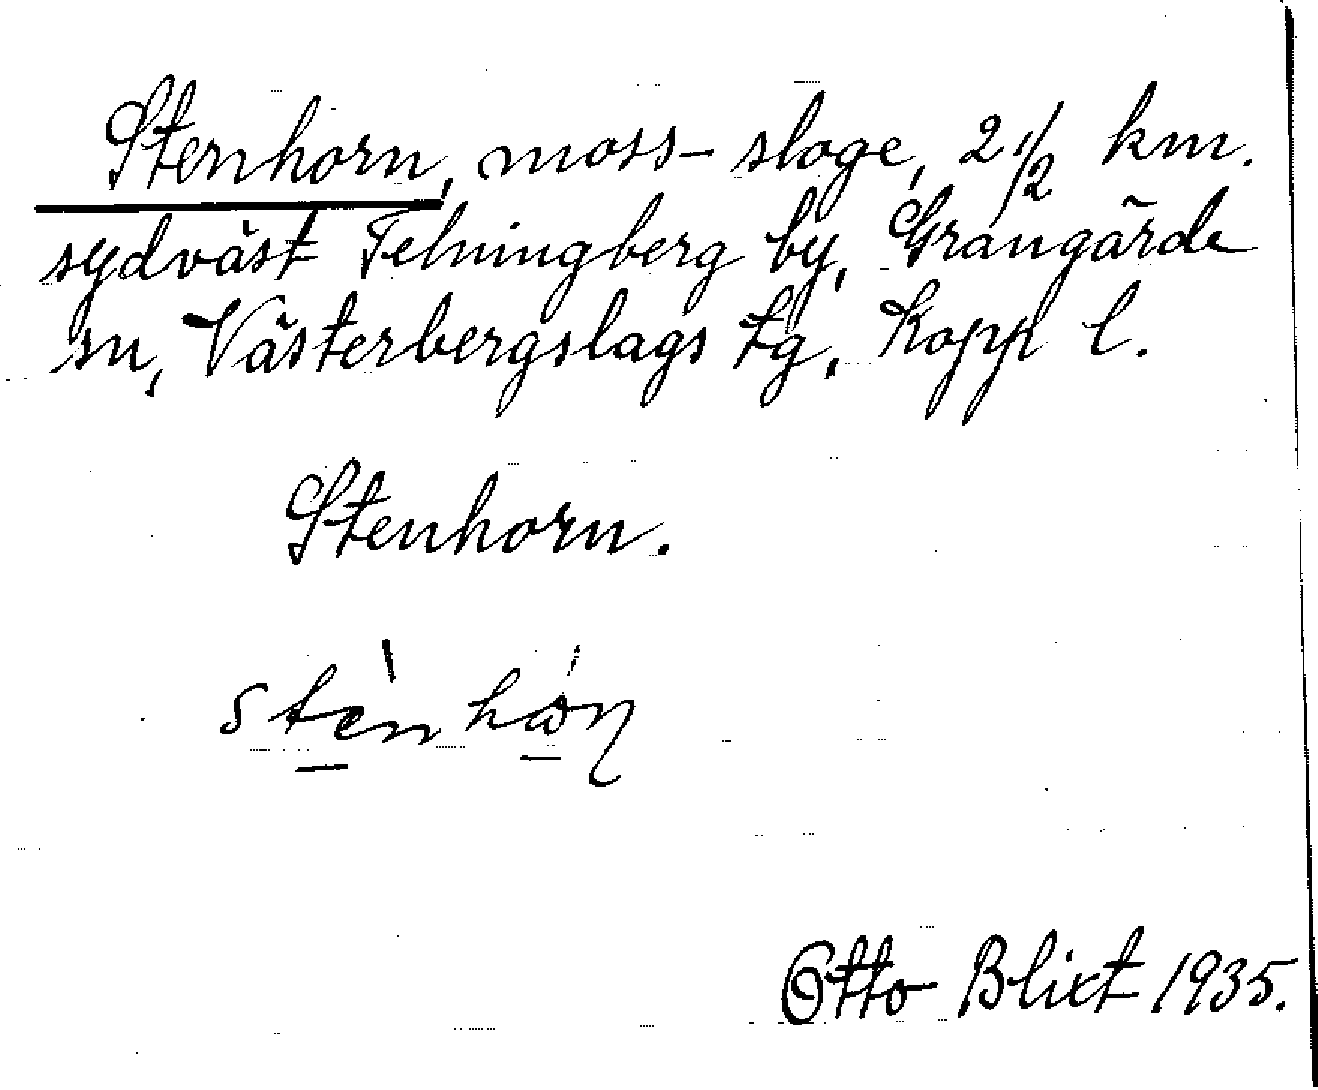 Stenhorn, moss-sloge, 2 1/2 km.
sydväst Felningberg by, Grangärde
sn, Västerbergslags tg, Kopp l.
Stenhorn.
Otto Blixt 1935.